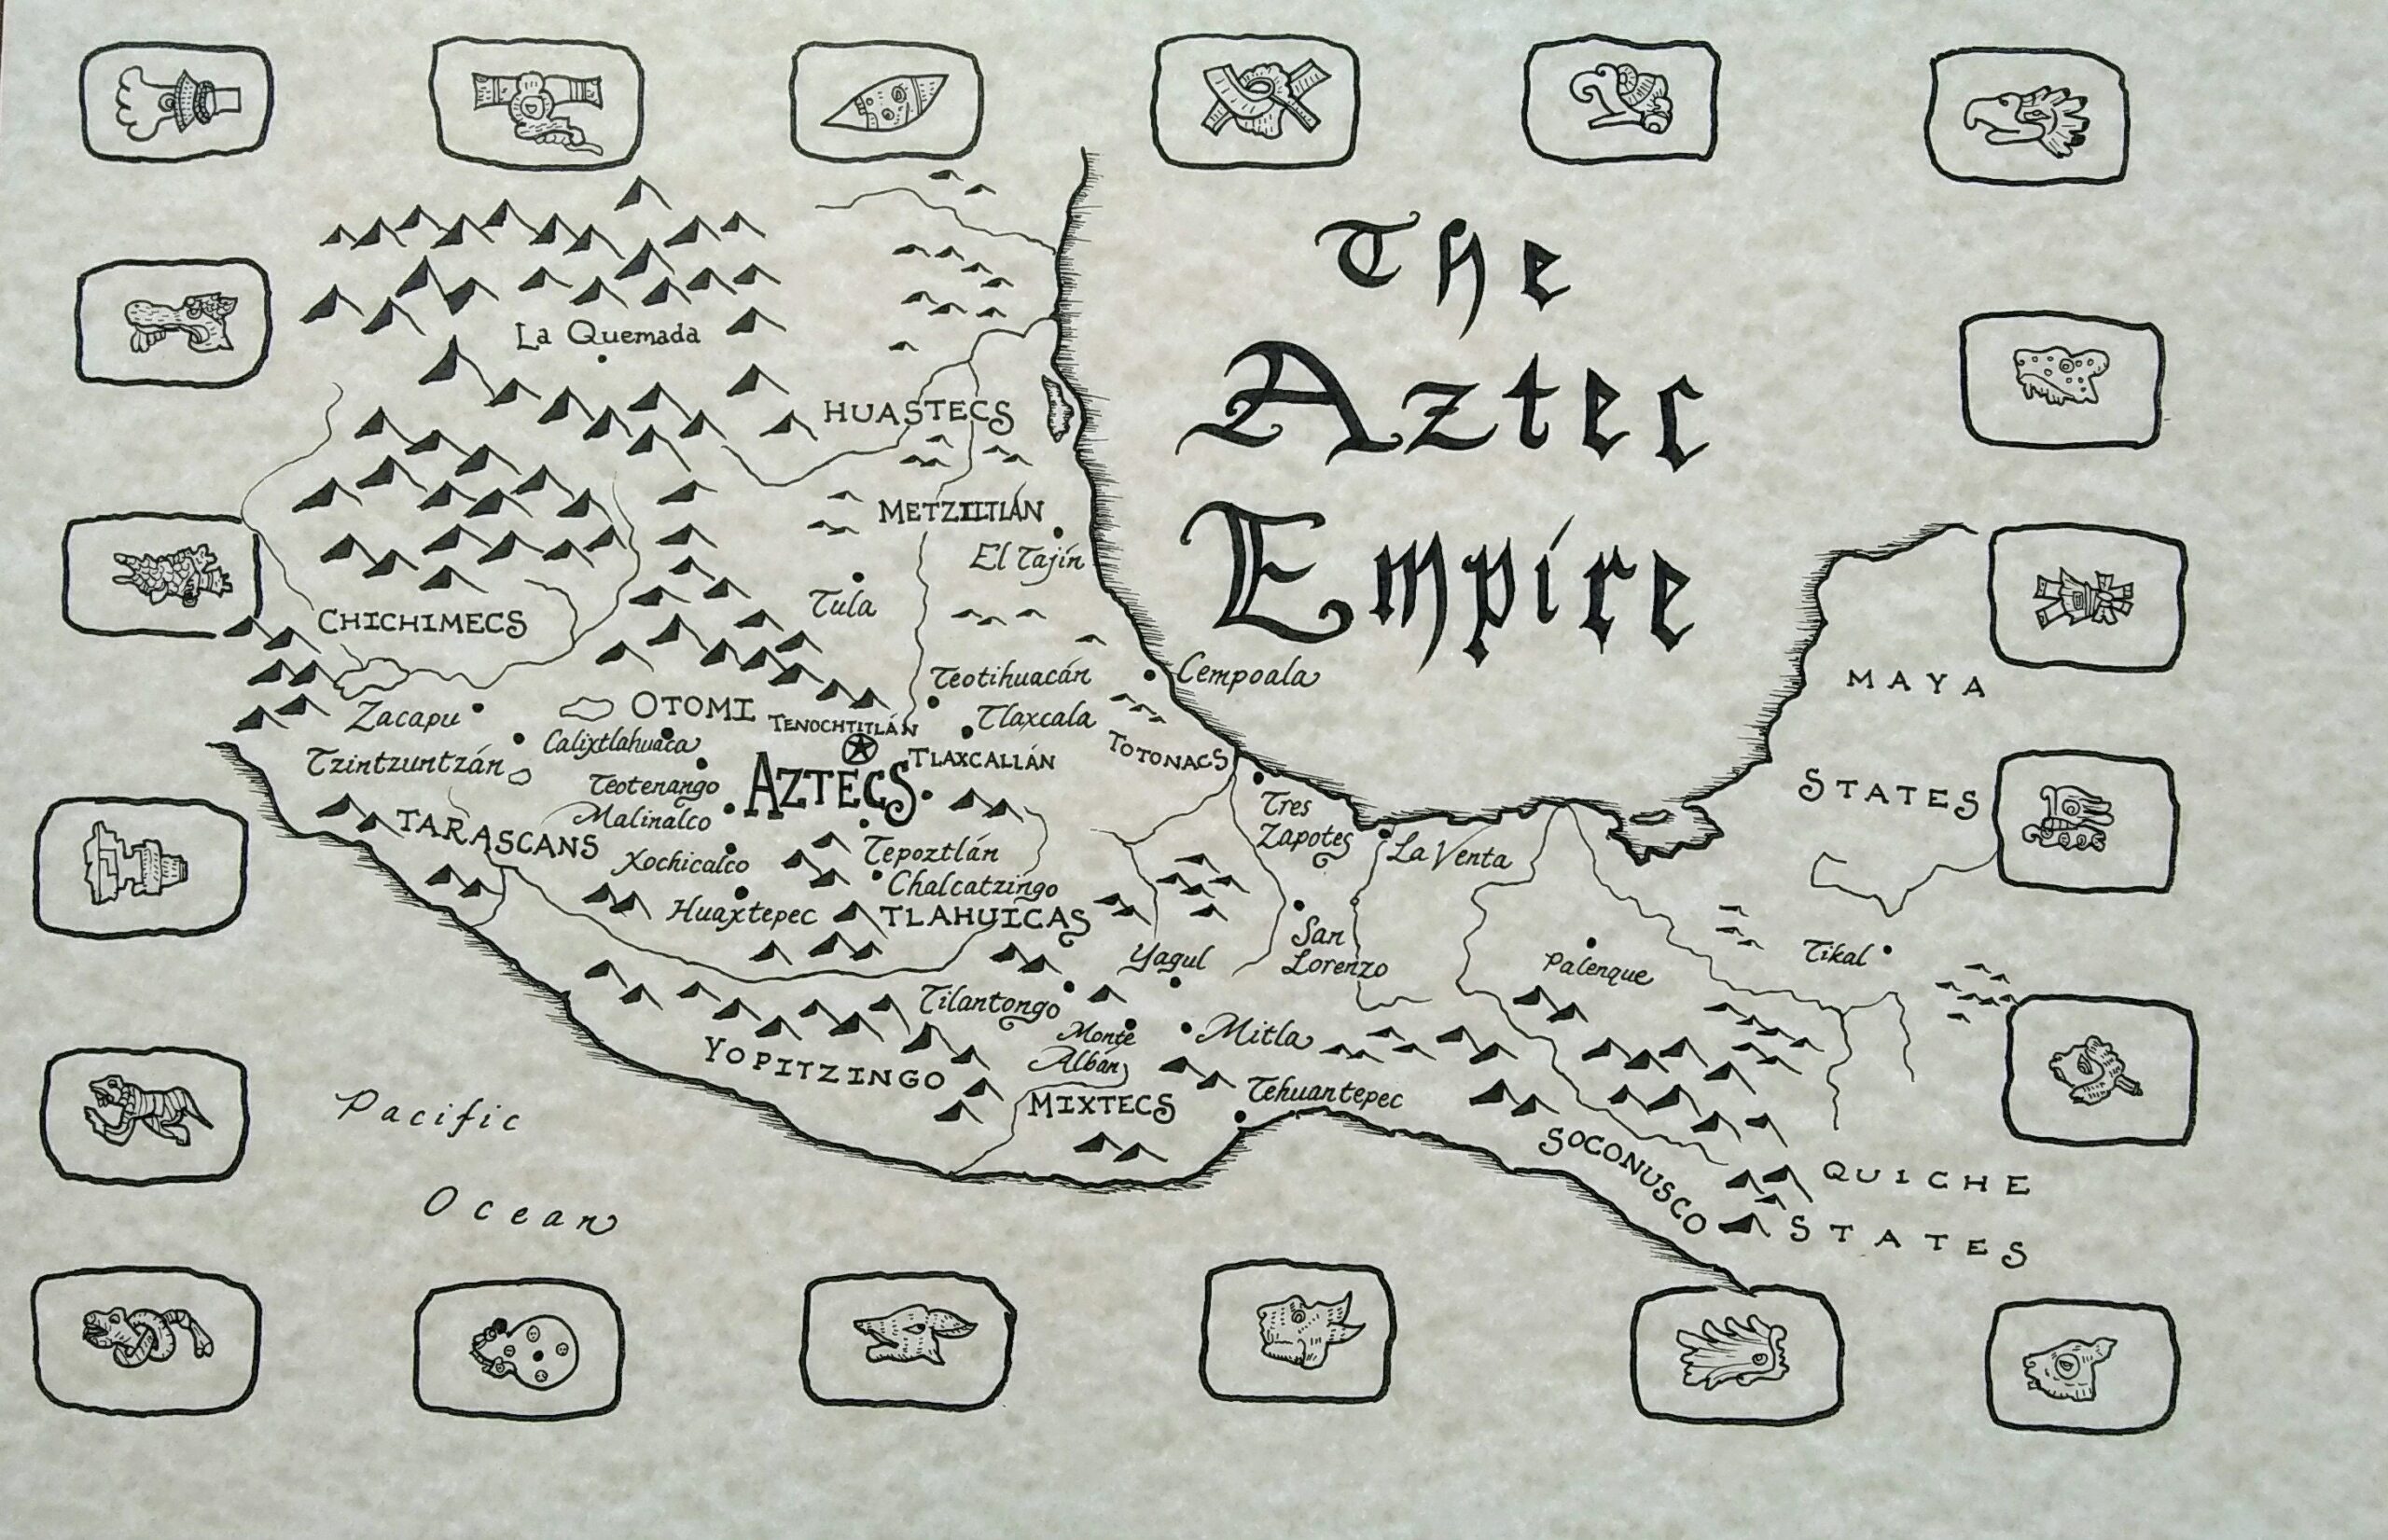 The
Aztec
Empire
La Quemada
HUASTECS
METZTITLÁN
El Tajín
Tula
CHICHIMECS
Teotihuacán
Cempoala
MAYA
STATES
Zacapu
OTOMI
TENOCHTITLÁN
Tlaxcala
Tzintzuntzán
Calixtlahuaca
TLAXCALLÁN
TOTONACS
Teotenango
AZTECS
Malinalco
Tres
Zapotes
La Venta
TARASCANS
Xochicalco
Tepoztlán
Chalcatzingo
Huaxtepec
TLAHUICAS
San
Lorenzo
Yagul
Palenque
Tikal
Tilantongo
Monte
Albán
Mitla
YOPITZINGO
MIXTECS
Tehuantepec
SOCONUSCO
QUICHE
STATES
Pacific
Ocean